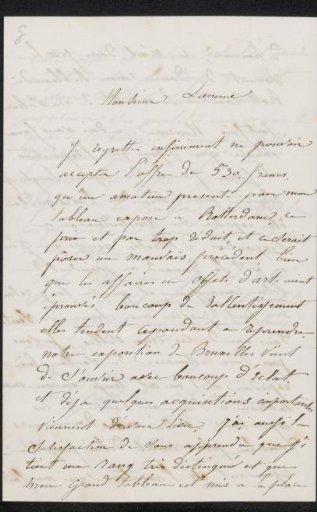 Monsieur Lamme
Je regrette infiniment ne pouvoir
accepter l'offre de 530 francs
qu'un amateur presente pour mon
tableau exposé a Rotterdam ce
prix est par trop réduit et ce serait
poser un mauvais précédent bien
que les affaires en objets d'art aient
éprouvé beaucoup de rallentissement
elles tendent cependant a reprendre
notre exposition de Bruxelles vient
de s'ouvrir avec beaucoup d'éclat
et deja quelques acquisitions importantes
viennent d'avoir lieu j'ai aussi la
satisfaction de vous apprendre que j'y
tient un rang très distingué et que
mon grand tableau est mis a la place